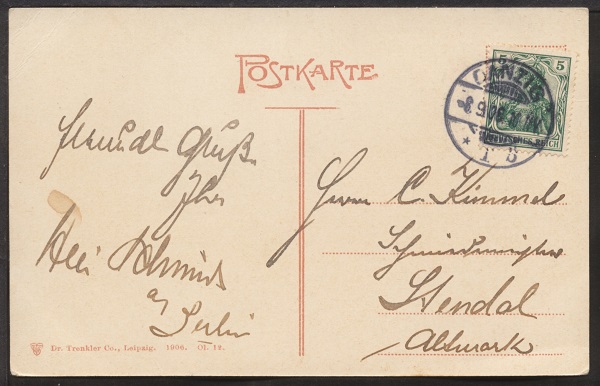 POSTKARTE
5
DANZIG
8.9.06
* 1 b
DEUTSCHES REICH
freundl. Gruß
Ihr
Schmidt
Berlin
Herrn C. Kimmel
Schmiedemeister
Stendal
Altmark
Dr. Trenkler Co., Leipzig. 1906. Ol. 12.